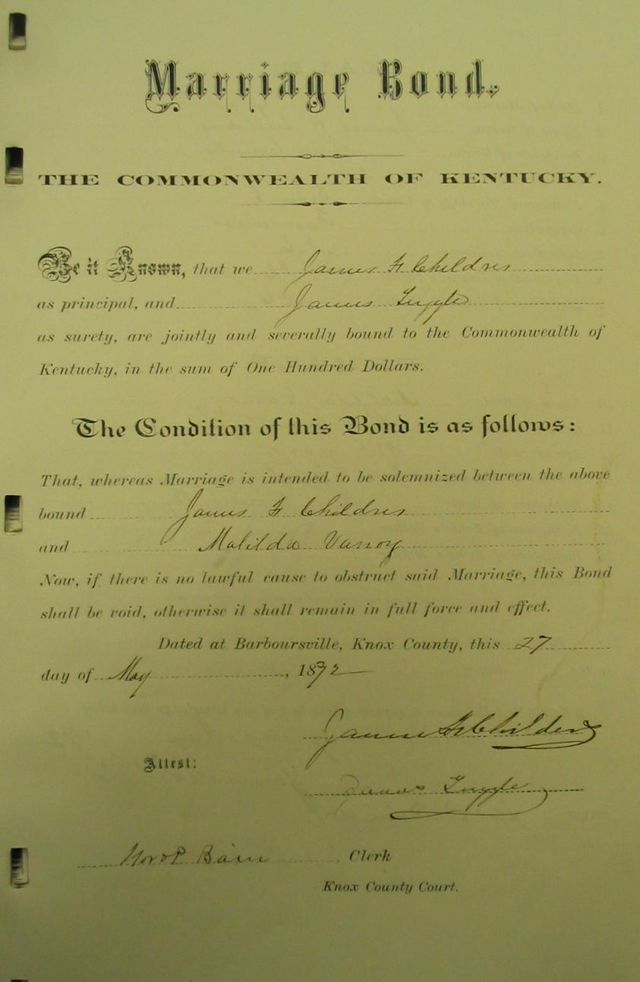 Marriage Bond.
THE COMMONWEALTH OF KENTUCKY.
Be it Known, that we James H Childres
as principal, and James Tuggle
as surety, are jointly and severally bound to the Commonwealth of
Kentucky, in the sum of One Hundred Dollars.
The Condition of this Bond is as follows:
That, whereas Marriage is intended to be solemnized between the above
bound James H Childres
and Matilda Vanoy
Now, if there is no lawful cause to obstruct said Marriage, this Bond
shall be void, otherwise it shall remain in full force and effect.
Dated at Barboursville, Knox County, this 27
day of May, 1872
James H Childers
Attest:
James Tuggle
Clerk
Knox County Court.